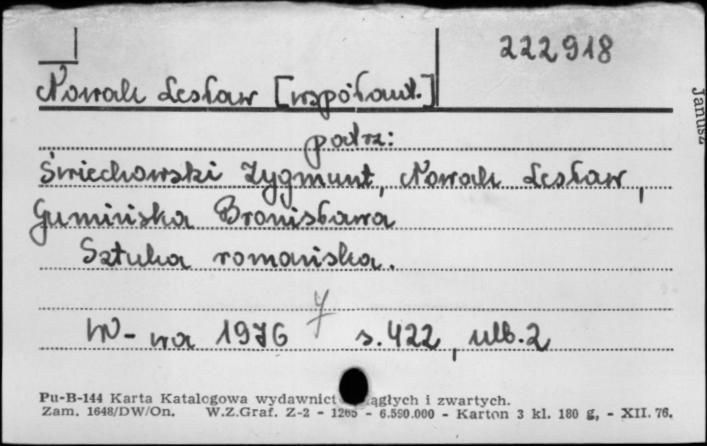 222918
Nowak Lesław [współaut.]
patrz:
Świechowski Zygmunt, Nowak Lesław,
Gumińska Bronisława
Sztuka romańska.
7
W-wa 1976 s.422, nlb.2
Pu-B-144 Karta Katalogowa wydawnict ągłych i zwartych.
Zam. 1648/DW/On. W.Z.Graf. Z-2 - 1265 - 6.590.000 - Karton 3 kl. 180 g, - XII. 76.
Janusz